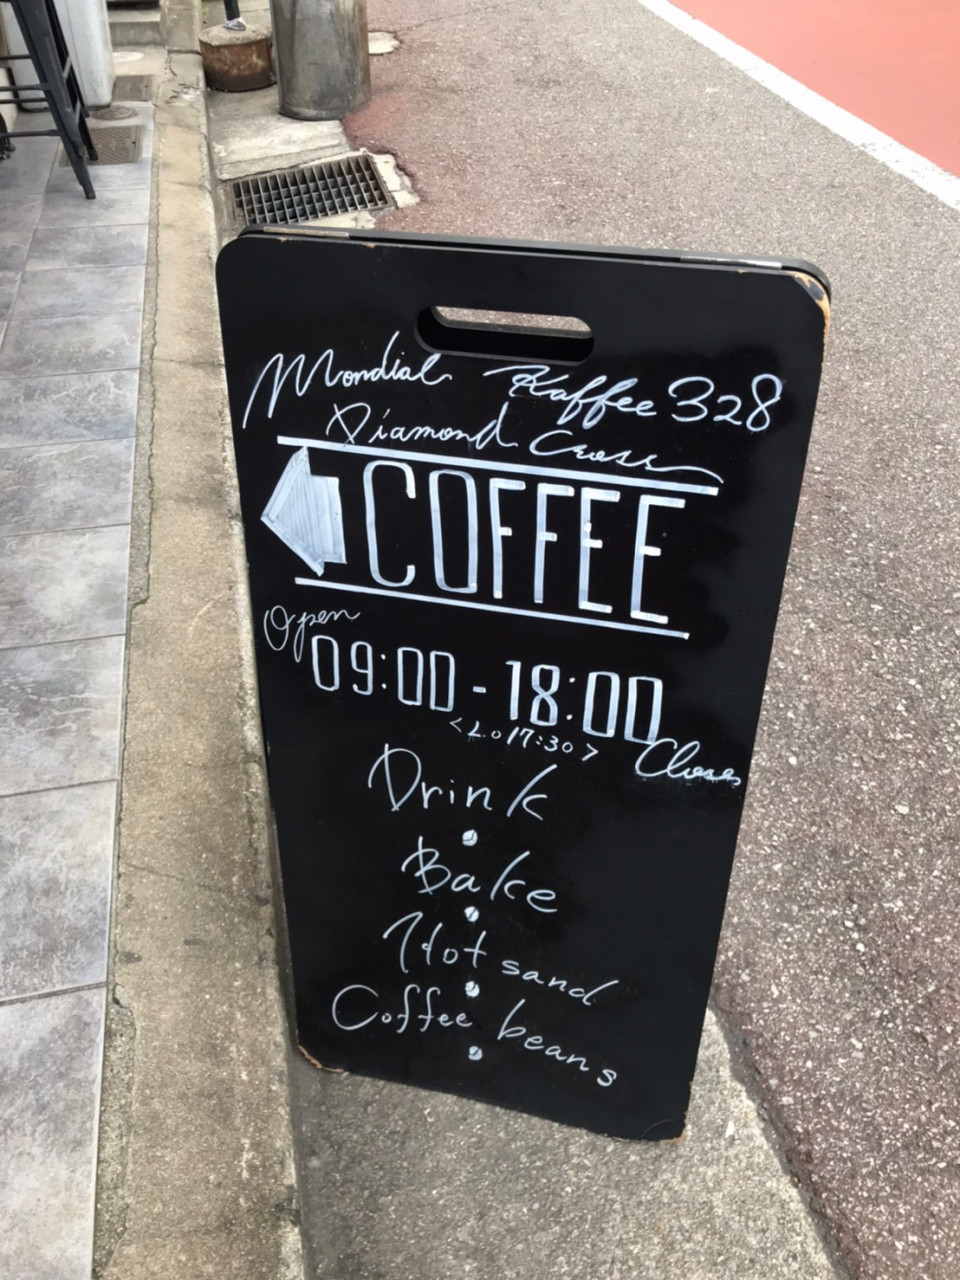 Mondial Kaffee 328
Diamond Cross
COFFEE
Open
09:00-18:00
<L.o 17:30>
Close
Drink
Bake
Hot sand
Coffee beans